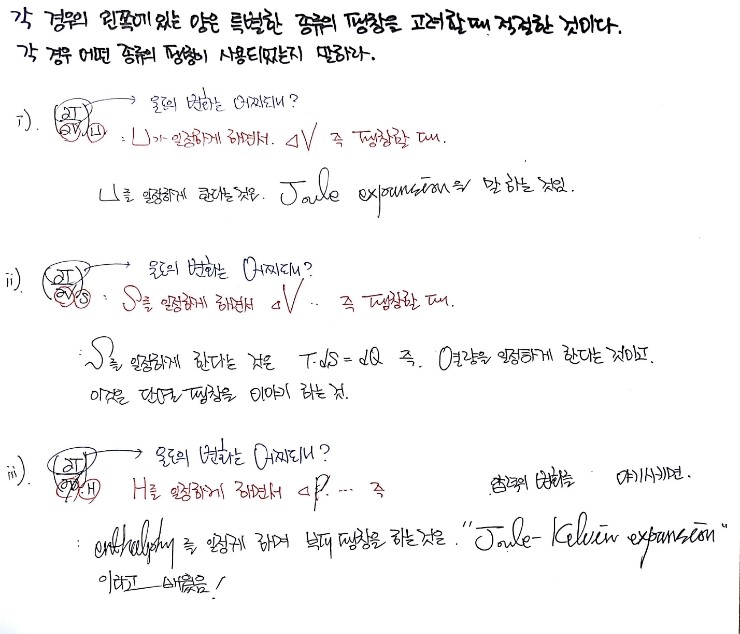 각 경우의 왼쪽에 있는 양은 특별한 종류의 팽창을 고려할 때 적절한 것이다.
각 경우 어떤 종류의 팽창이 사용되었는지 말하라.
i). (∂T/∂V)U → 온도의 변화는 어찌되니?
: U가 일정하게 하면서. ΔV 즉 팽창할 때.
U를 일정하게 한다는 것은. Joule expansion을 말 하는 것임.
ii). (∂T/∂V)S → 온도의 변화는 어찌되니?
: S를 일정하게 하면서 ΔV .. 즉 팽창할 때.
: S를 일정하게 한다는 것은 T·dS = dQ 즉. 열량을 일정하게 한다는 것이고.
이것은 단열 팽창을 이야기 하는 것.
iii). (∂T/∂P)H → 온도의 변화는 어찌되니?
H를 일정하게 하면서 ΔP.... 즉 압력의 변화를 야기시키면.
: enthalphy를 일정케 하며 부피 팽창을 하는 것은. "Joule-Kelvin expansion"
이라고 배웠음!